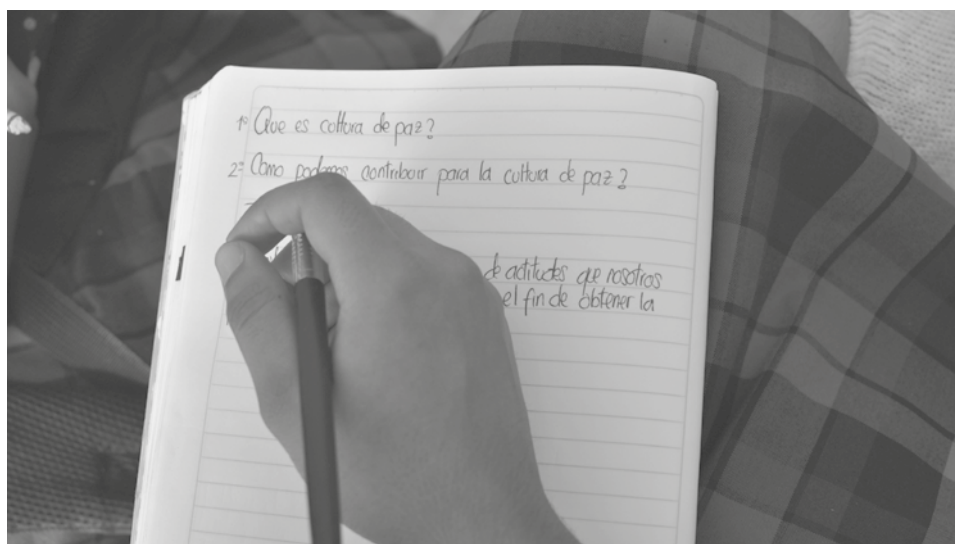 1º Que es coltura de paz?
2º Como podemos contriboir para la coltura de paz?
de actitudes que nosotros
el fin de obtener la